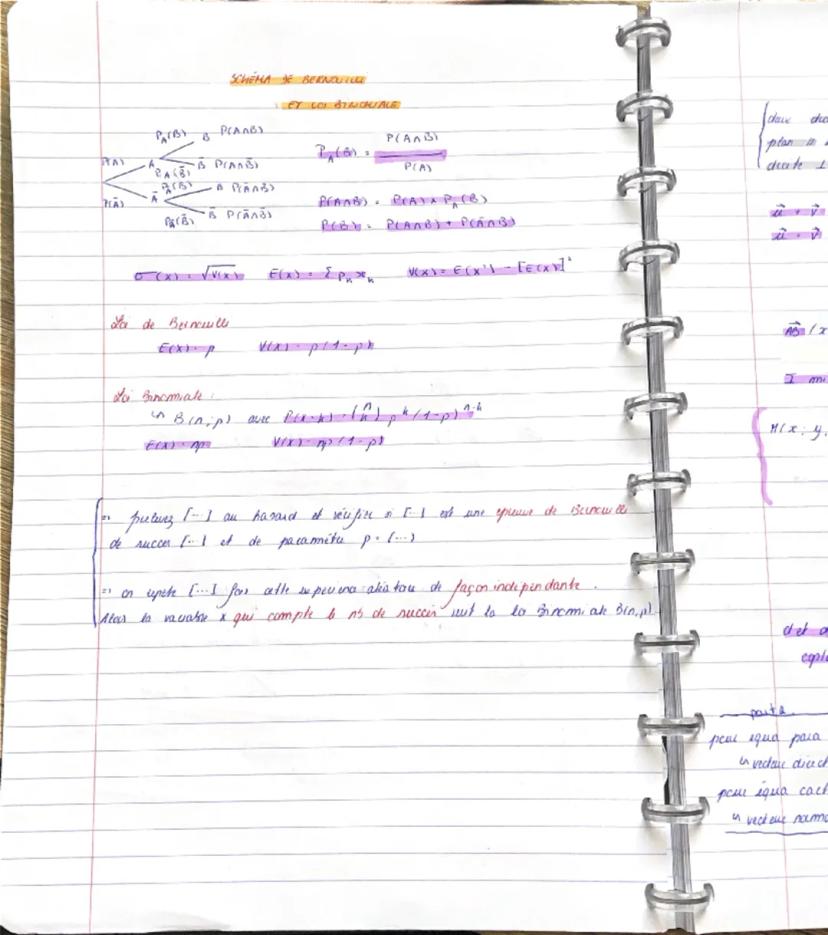 SCHÉMA DE BERNOUILLI
ET LOI BINOMIALE
P(A) A P_A(B) B P(A∩B)
P_A(B̄) B̄ P(A∩B̄)
P(Ā) Ā P_Ā(B) B P(Ā∩B)
P_Ā(B̄) B̄ P(Ā∩B̄)
P_A(B) = P(A∩B) / P(A)
P(A∩B) = P(A) × P_A(B)
P(B) = P(A∩B) + P(Ā∩B)
σ(x) = √V(x) E(x) = Σ p_k x_k V(x) = E(x²) - [E(x)]²
Loi de Bernouilli
E(x) = p V(x) = p(1-p)
Loi Binomiale :
↳ B(n;p) avec P(x=k) = (n k) p^k (1-p)^n-k
E(x) = np V(x) = np(1-p)
=> prelevez [...] au hasard et vérifier si [...] est une epreuve de Bernouilli
de succes [...] et de paramètre p = [...]
=> on repete [...] fois cette experience aléatoire de façon indépendante.
Alors la variable x qui compte le nb de succès suit la loi Binomiale B(n,p).
deux
plan
droite ⊥
u⃗ + v⃗
u⃗ · v⃗
AB⃗ (x
I mi
M(x; y,
d et
pour equa para
↳ vecteur direct
pour équa cart
↳ vecteur norma